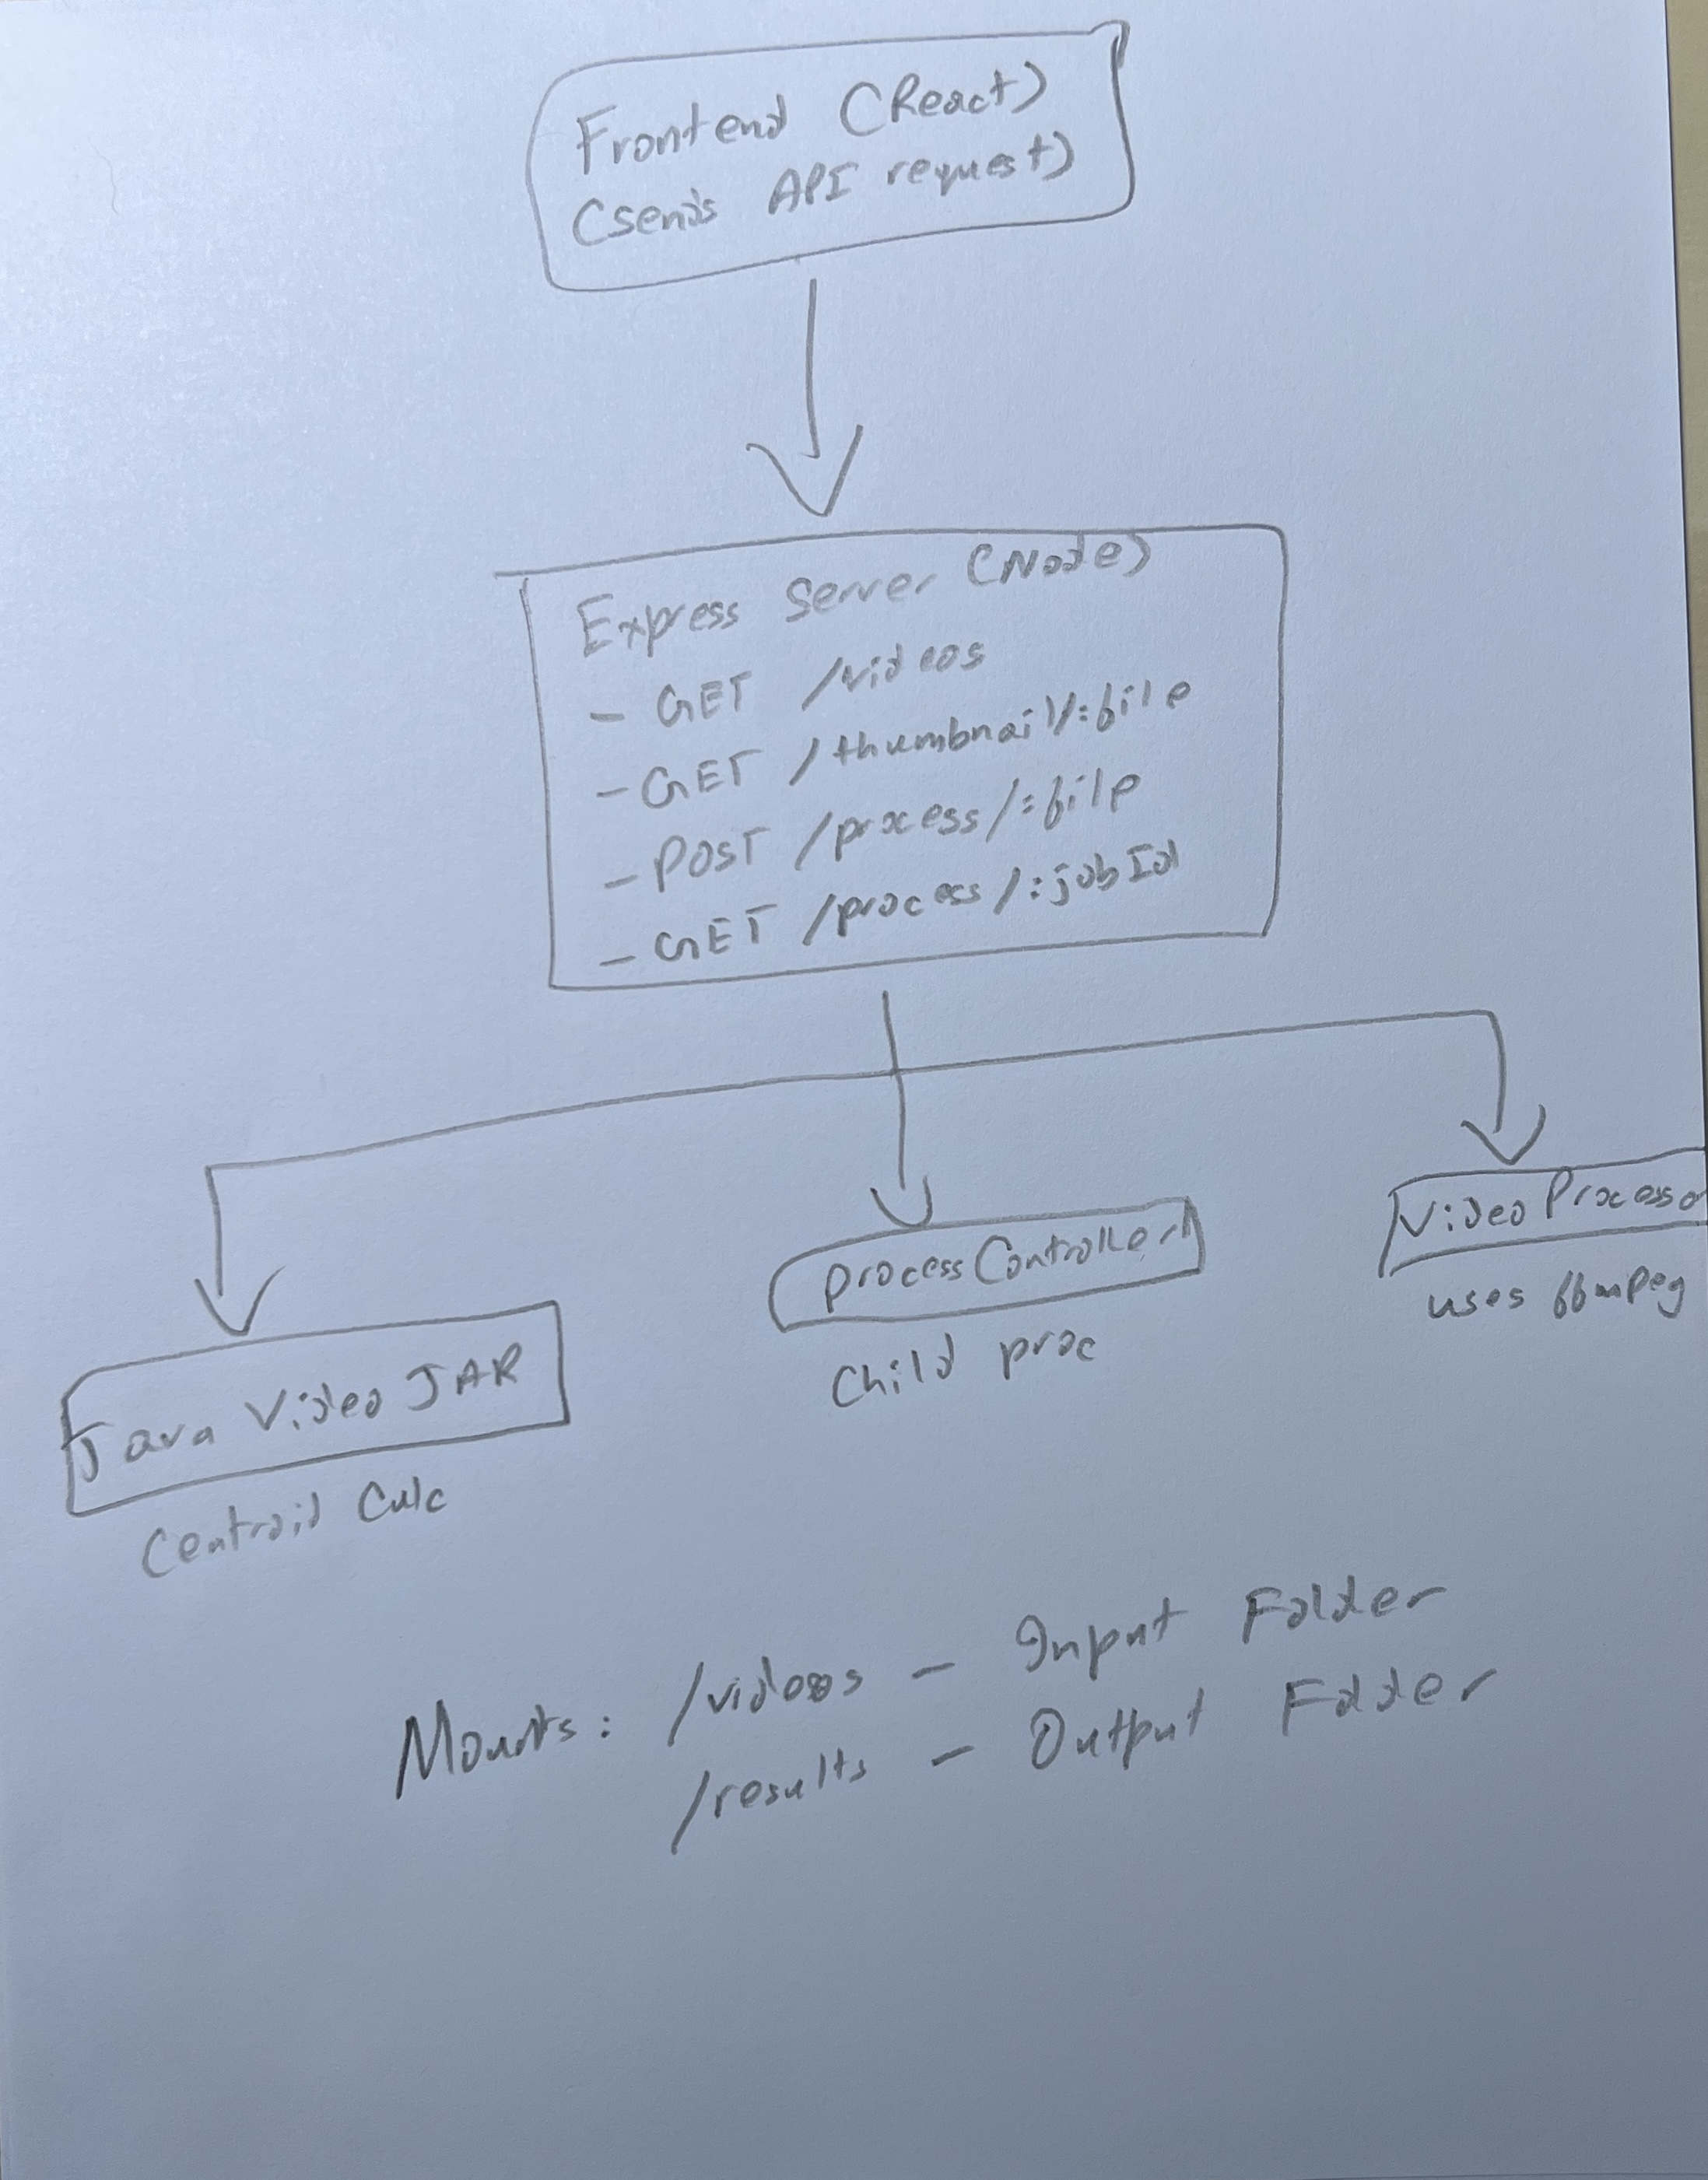 Frontend (React)
(sends API request)
Express Server (Node)
- GET /videos
- GET /thumbnail/:file
- POST /process/:file
- GET /process/:jobId
Java Video JAR
Centroid Calc
processController
Child proc
VideoProcesso
uses ffmpeg
Mounts: /videos - Input Folder
/results - Output Folder